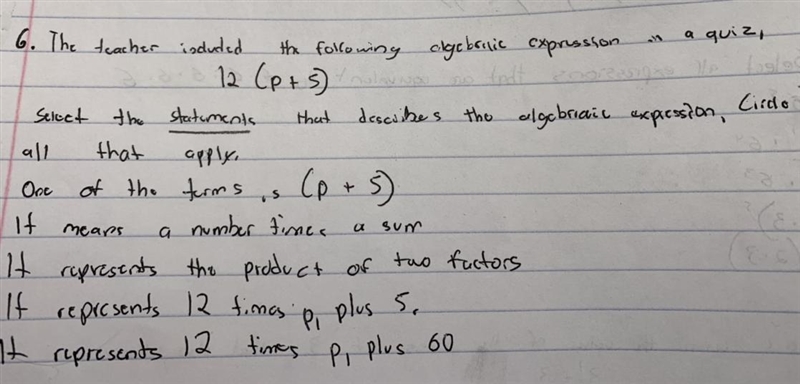 6. The teacher included the following algebraic expression in a quiz,
12 (p + 5)
Select the statements that describes the algebraic expression, Circle
all that apply.
One of the terms is (p + 5)
It means a number times a sum
It represents the product of two factors
It represents 12 times p, plus 5.
It represents 12 times p, plus 60